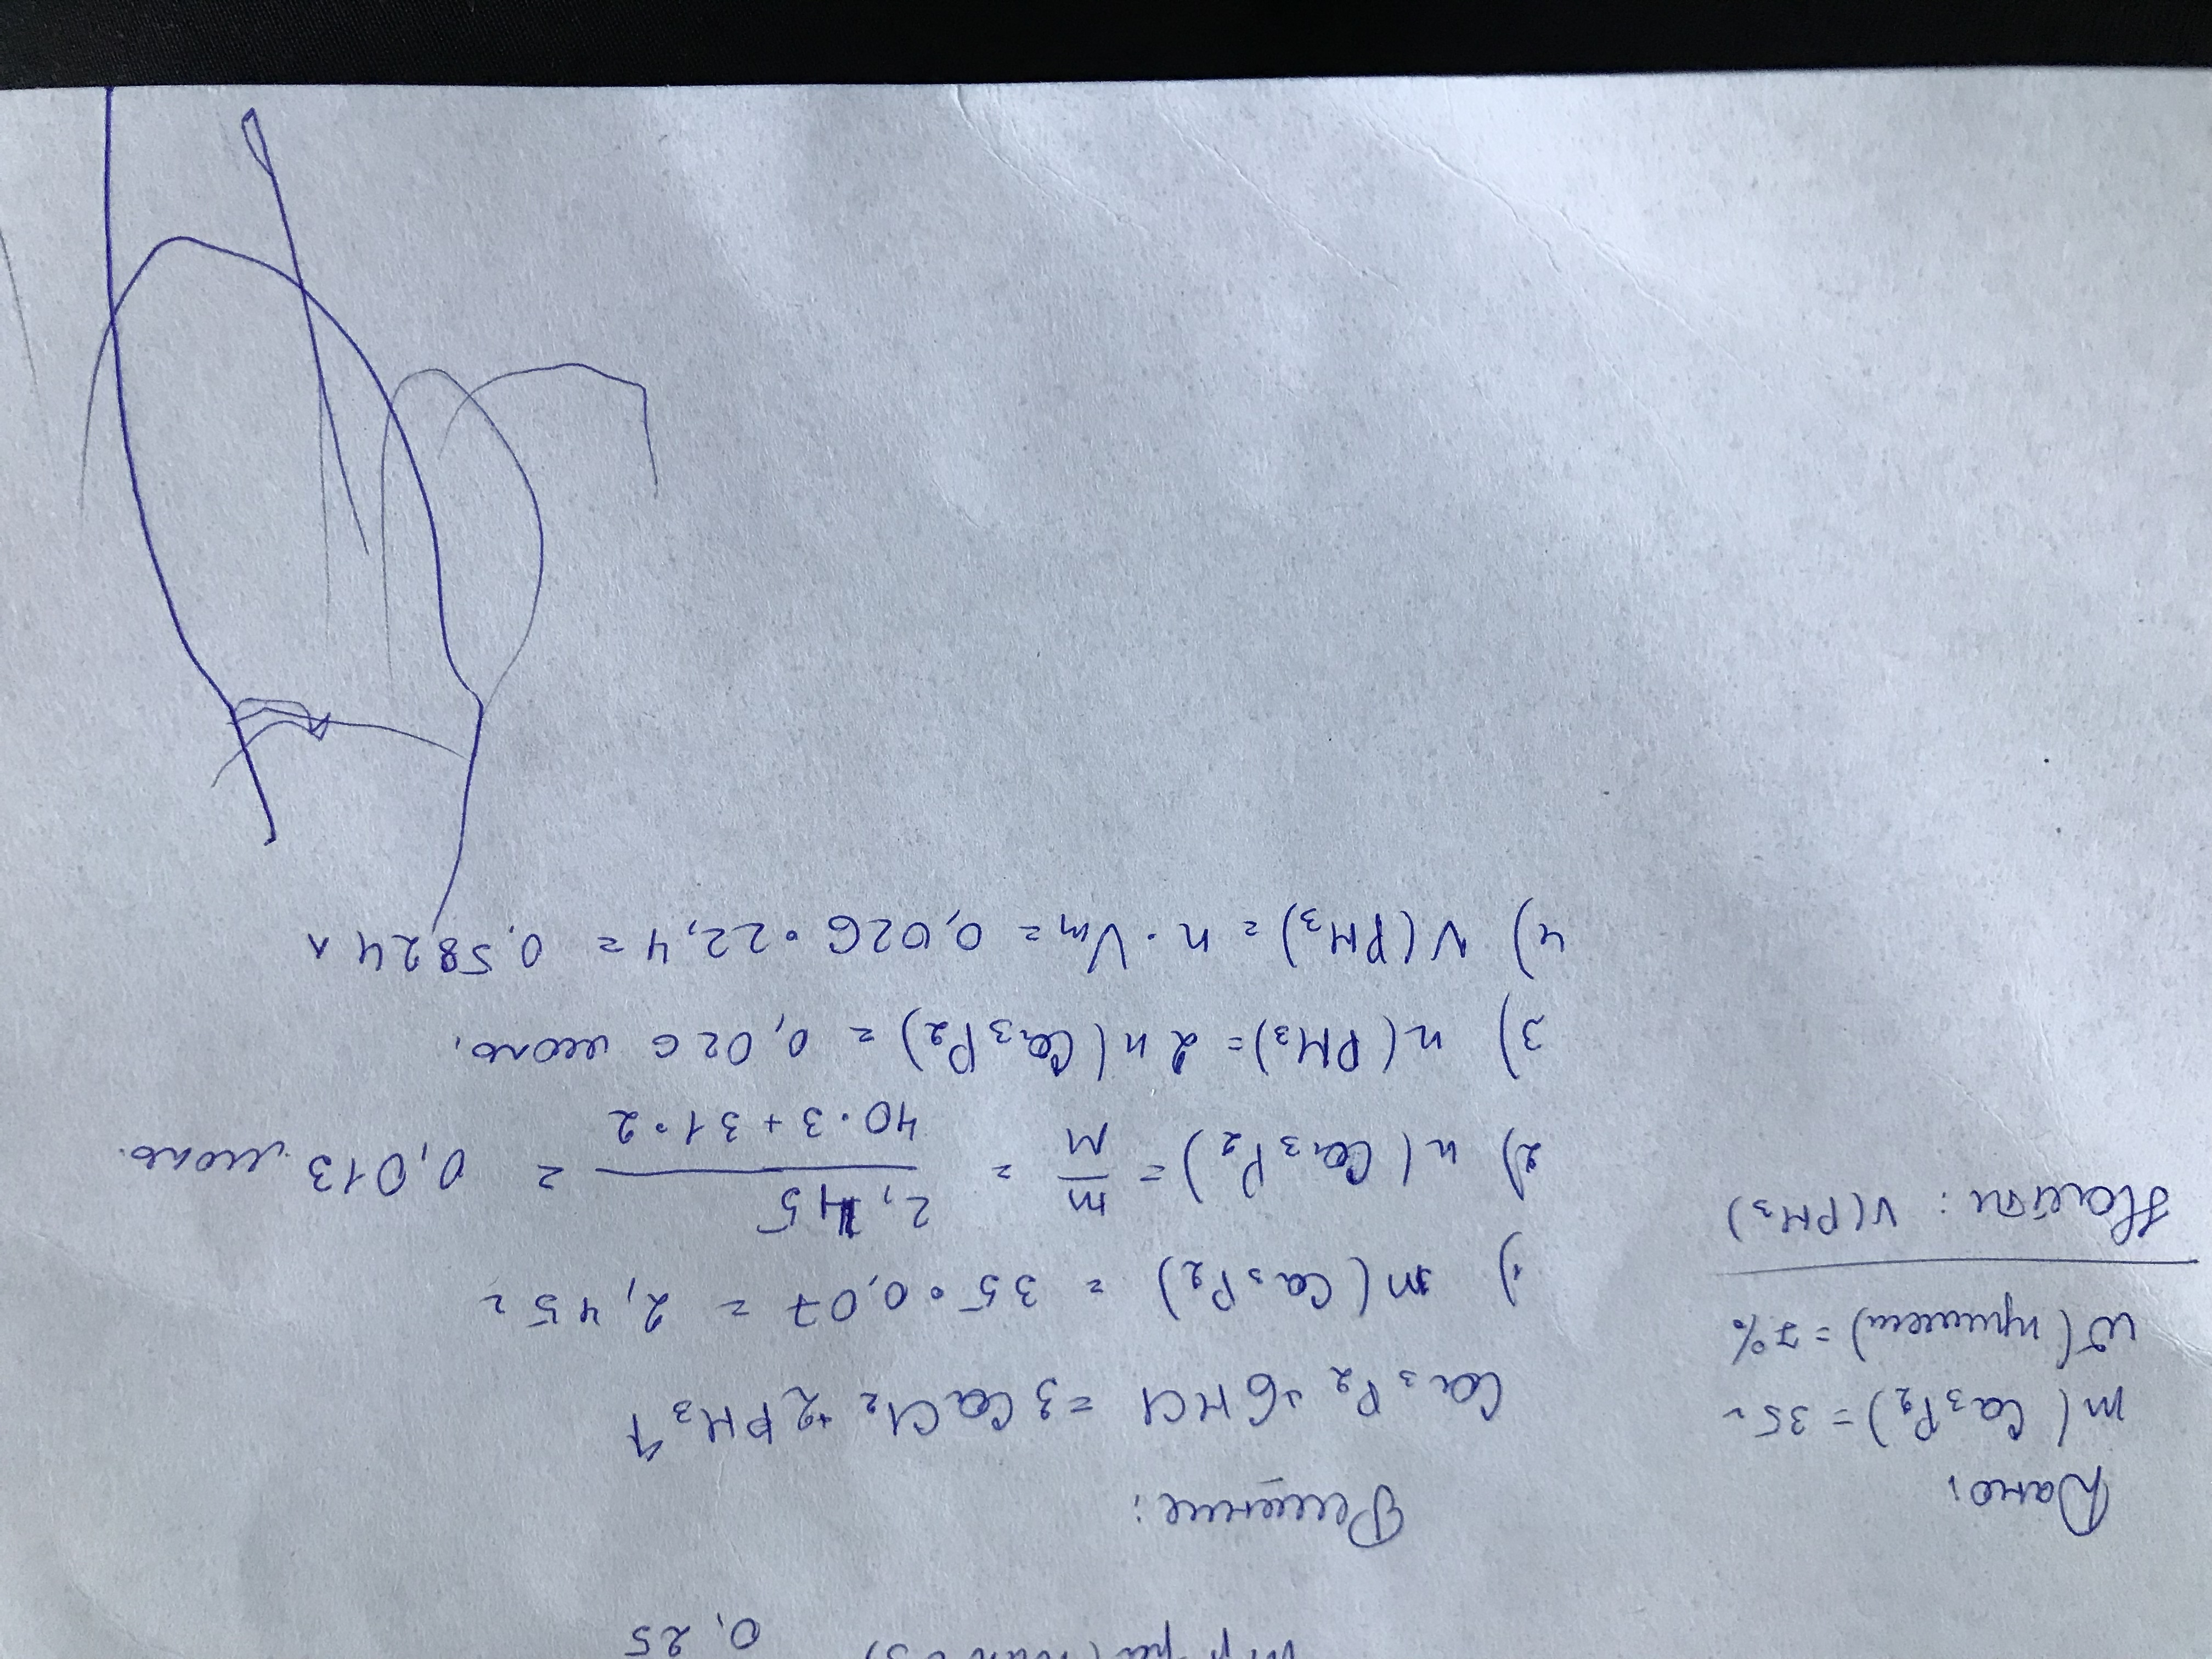 0,25
Дано:
m(Ca3P2) = 35г
W(примеси) = 7%
Найти: V(PH3)
Решение:
Ca3P2 + 6HCl = 3CaCl2 + 2PH3↑
1) m(Ca3P2) = 35 • 0,07 = 2,45г
2) n(Ca3P2) = m/M = 2,45/40·3+31·2 = 0,013 моль.
3) n(PH3) = 2n(Ca3P2) = 0,026 моль.
4) V(PH3) = n · Vm = 0,026 • 22,4 = 0,5824 л